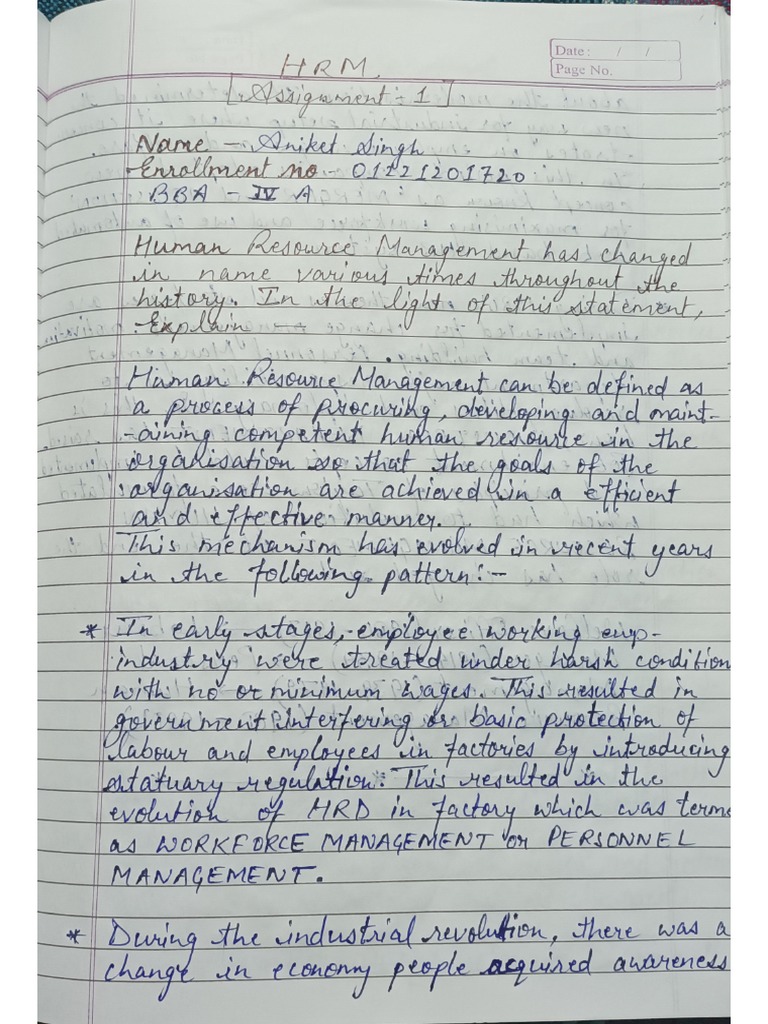 Date: / /
Page No.
HRM.
[Assignment - 1]
Name - Aniket Singh
Enrollment no - 01221201720
BBA - IV A
Human Resource Management has changed
in name various times throughout the
history. In the light of this statement,
Explain -
Human Resource Management can be defined as
a process of procuring, developing and maint-
-aining competent human resource in the
organisation so that the goals of the
organisation are achieved in a efficient
and effective manner.
This mechanism has evolved in recent years
in the following pattern:-
* In early stages, employee working
industry were treated under harsh condition
with no or minimum wages. This resulted in
government interfering or basic protection of
labour and employees in factories by introducing
statuary regulation. This resulted in the
evolution of HRD in factory which was term
as WORKFORCE MANAGEMENT or PERSONNEL
MANAGEMENT.
* During the industrial revolution, there was a
change in economy people acquired awareness